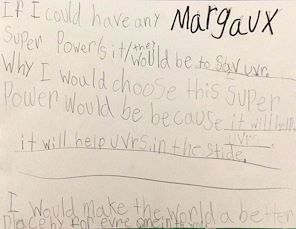 If I could have any Margaux
Super Power/s it/they would be to sav uvrs.
Why I would choose this super
Power would be because it will help
it will help uvrs in the stide.
I would make the world a better
place by for evre one